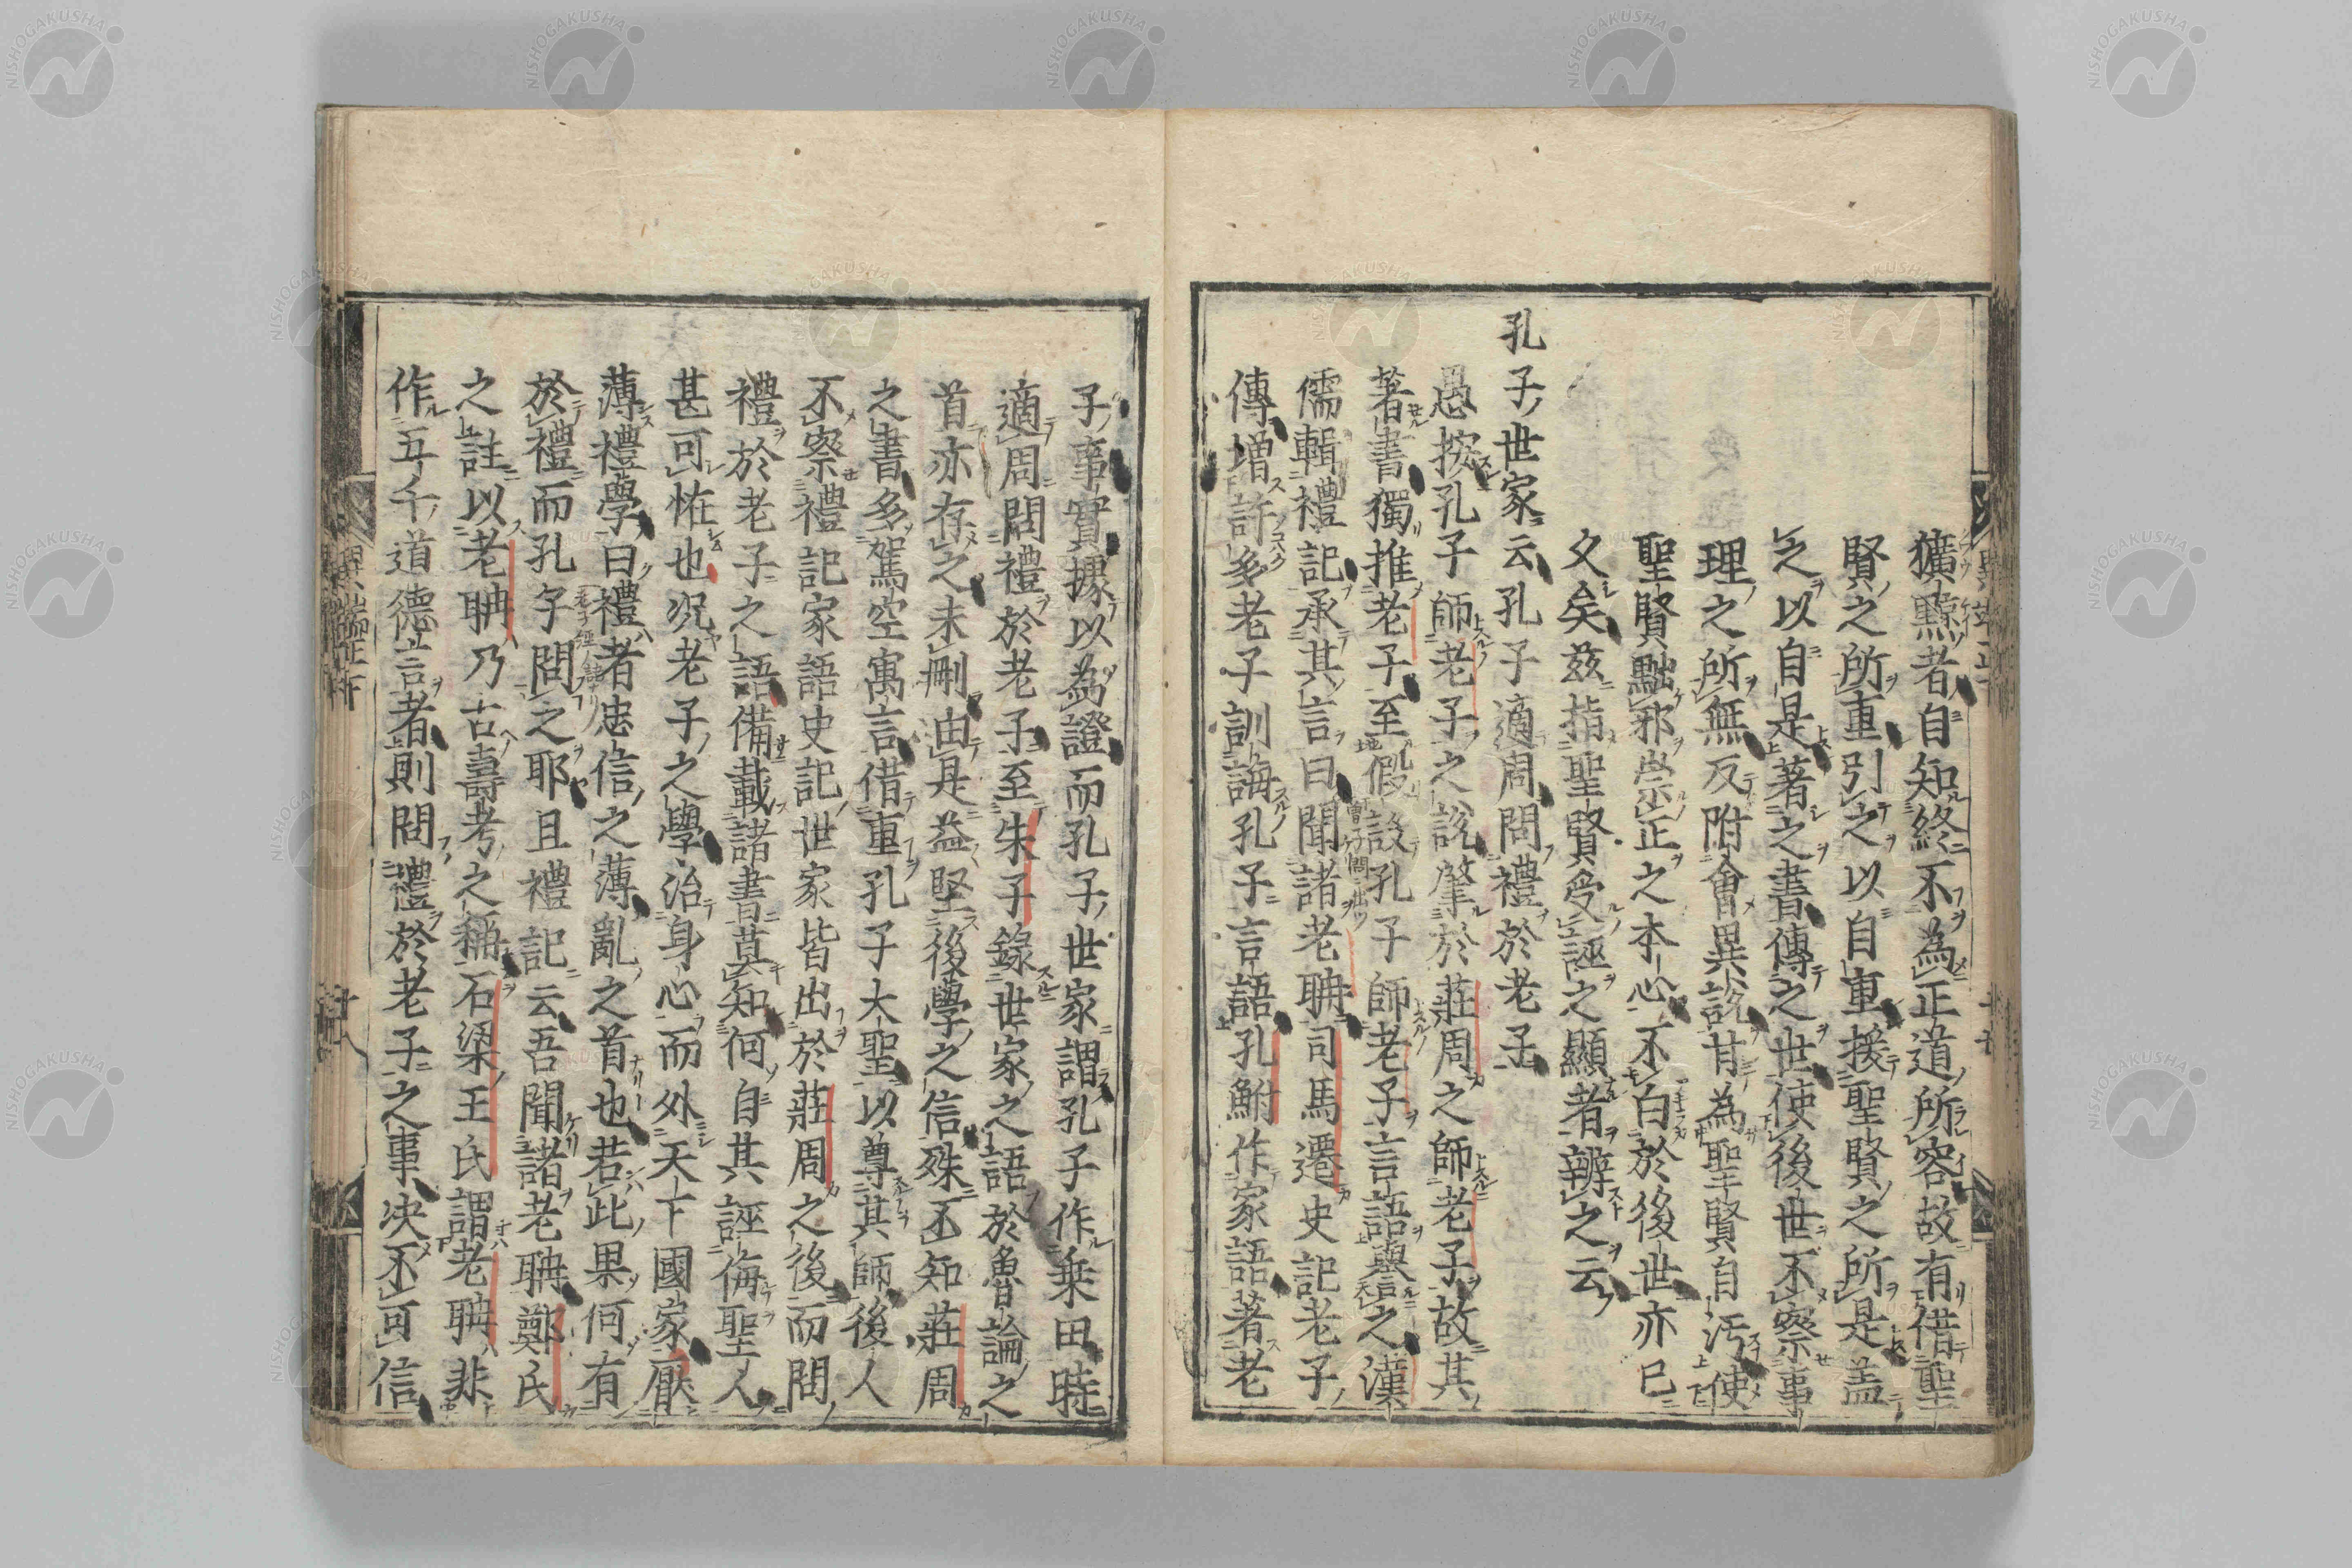 獷黥者自知終不為正道所容故有借聖
賢之所重引之以自重援聖賢之所是盖
之以自是著之書傳之世使後世不察事
理之所無反附會異說甘為聖賢自汚使
聖賢黜邪崇正之本心不白於後世亦已
久矣玆指聖賢受誣之顯者辨之云
孔子世家云孔子適周問禮於老子
愚按孔子師老子之說肇於莊周之師老子故其
著書獨推老子至假設孔子師老子言語與之漢
儒輯禮記承其言曰聞諸老聃司馬遷史記老子
傳增許多老子訓誨孔子言語孔鮒作家語著老
子事實據以為證而孔子世家謂孔子作乗田時
適周問禮於老子至朱子錄世家之語於魯論之
首亦存之未刪由是益堅後學之信殊不知莊周
之書多駕空寓言借重孔子大聖以尊其師後人
不察禮記家語史記世家皆出於莊周之後而問
禮於老子之語備載諸書莫知何自其誣侮聖人
甚可恠也况老子之學治身心而外天下國家厭
薄禮學曰禮者忠信之薄亂之首也若此果何有
於禮而孔子問之耶且禮記云吾聞諸老聃鄭氏
之註以老聃乃古壽考之稱石梁王氏謂老聃非
作五千道德言者則問禮於老子之事决不可信
異端正下
NISHOGAKUSHA